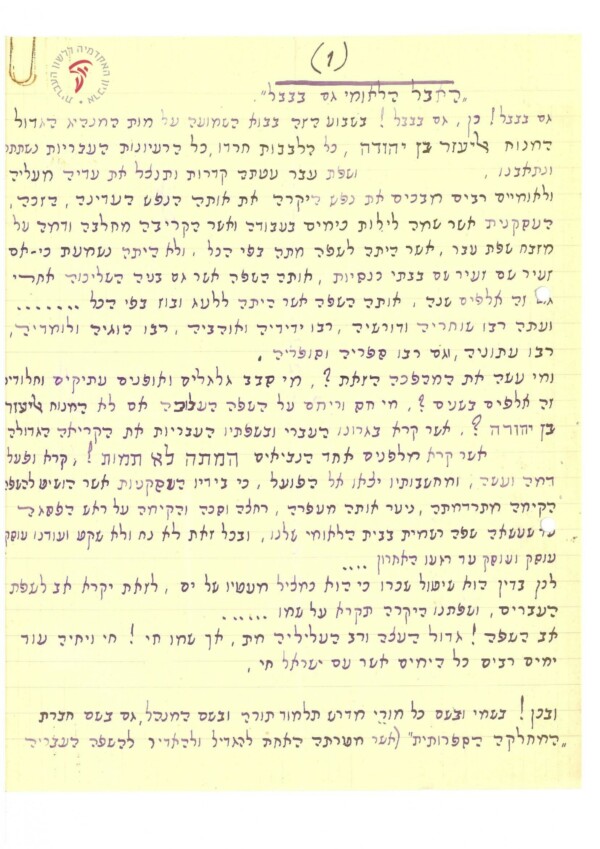 ארכיון האקדמיה ללשון העברית
(1)
"האבל הלאומי גם בבבל".
גם בבבל! כן, גם בבבל! בשבוע הזה בבוא השמועה על מות המנהיג הגדול
המנוח אליעזר בן יהודה, כל הלבבות חרדו, כל הרעיונות העבריות נשתתמו
ונתאבנו, ושפת עבר עטתה קדרות ותנצל את עדיה מעליה
ולאומיים רבים מבכים את נפש היקרה את אותה הנפש העדינה, הזכה,
העסקנית אשר שמה לילות כימים בעבודה ואשר הקריבה מחלבה ודמה על
מזבח שפת עבר, אשר היתה לשפה מתה בפי הכל, ולא היתה נשמעת כי-אם
זעיר שם זעיר שם בבתי כנסיות, אותה השפה אשר גם בניה השליכוה אחרי
גום זה אלפים שנה, אותה השפה אשר היתה ללעג ובוז בפי הכל .......
ועתה רבו שוחריה ודורשיה, רבו ידידיה ואוהביה, רבו הוגיה ולומדיה,
רבו עתוניה, וגם רבו ספריה וסופריה.
ומי עשה את המהפכה הזאת?, מי סבב גלגלים ואופנים עתיקים וחלודים
זה אלפים בשנים?, מי חס וריחם על השפה העלובה אם לא המנוח אליעזר
בן יהודה?, אשר קרא בגרונו העברי ובשפתיו העבריות את הקריאה הגדולה
אשר קרא מלפנים אחד הנביאים המתה לא תמות!, קרא ופעל
דמה ועשה, ומחשבותיו יצאו אל הפועל, כי בידיו העסקניות אשר הושיט להשפה
הקימה מתרדמתה, ניער אותה מעפרה, רחצה וסכה והקימה על ראש הפסגה
עד שעשאה שפה רשמית בבית הלאומי שלנו, ובכל זאת לא נח ולא שקט ועודנו עוסק
עוסק ועוסק עד רגעו האחרון ....
לכן בדין הוא שיטול שכרו כי הוא כמציל מעמקיו של ים, לזאת יקרא אב לשפת
העברים, ושפתנו היקרה תקרא על שמו ......
אב השפה! גדול העצה ורב העליליה מת, אך שמו חי! חי ויחיה עוד
ימים רבים כל הימים אשר עם ישראל חי,
ובכן! בשמי ובשם כל מורי מדרש תלמוד תורה ובשם המנהל, גם בשם חברת
"המחלקה הספרותית" (אשר מטרתה האחת להגדיל ולהאדיר להשפה העבריה